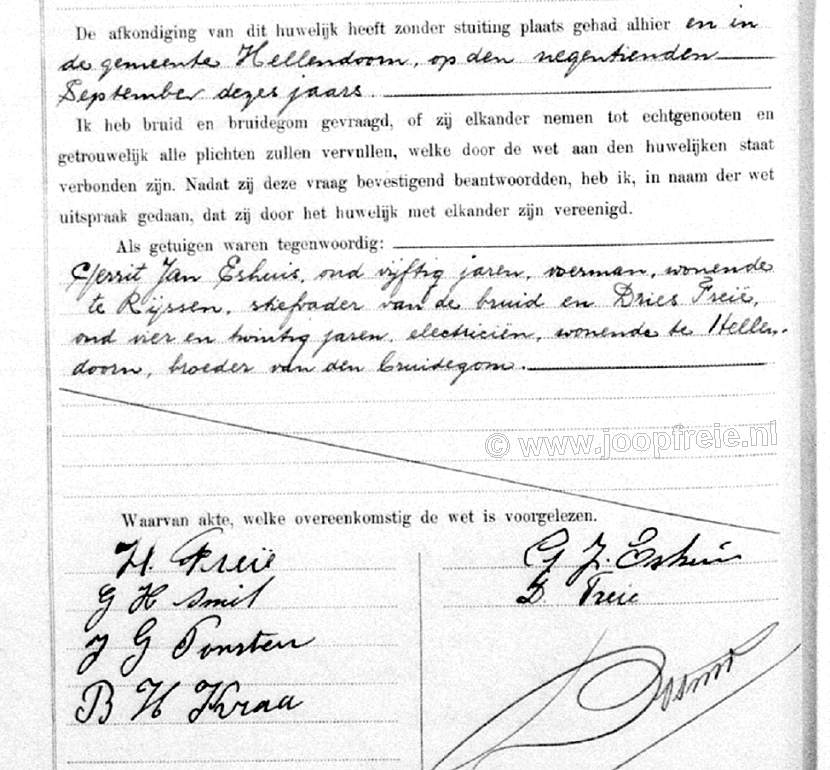 De afkondiging van dit huwelijk heeft zonder stuiting plaats gehad alhier en in
de gemeente Hellendoorn, op den negentienden
September dezes jaars.
Ik heb bruid en bruidegom gevraagd, of zij elkander nemen tot echtgenooten en
getrouwelijk alle plichten zullen vervullen, welke door de wet aan den huwelijken staat
verbonden zijn. Nadat zij deze vraag bevestigend beantwoordden, heb ik, in naam der wet
uitspraak gedaan, dat zij door het huwelijk met elkander zijn vereenigd.
Als getuigen waren tegenwoordig:
Gerrit Jan Eshuis, oud vijftig jaren, voerman, wonende
te Rijssen, stiefvader van de bruid en Dries Freië,
oud vier en twintig jaren, electriciën, wonende te Hellen-
doorn, broeder van den bruidegom.
© www.joopfreie.nl
Waarvan akte, welke overeenkomstig de wet is voorgelezen.
H. Freië
G H Smit
J G Ponsteen
B H Kraa
G J. Eshuis
D Freie